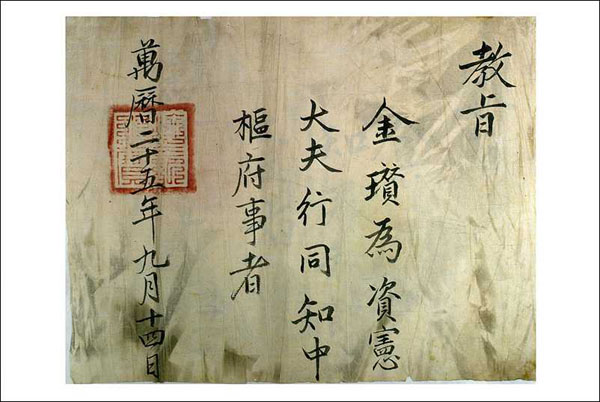 教旨
金瓚為資憲
大夫行同知中
樞府事者
萬曆二十五年九月十四日